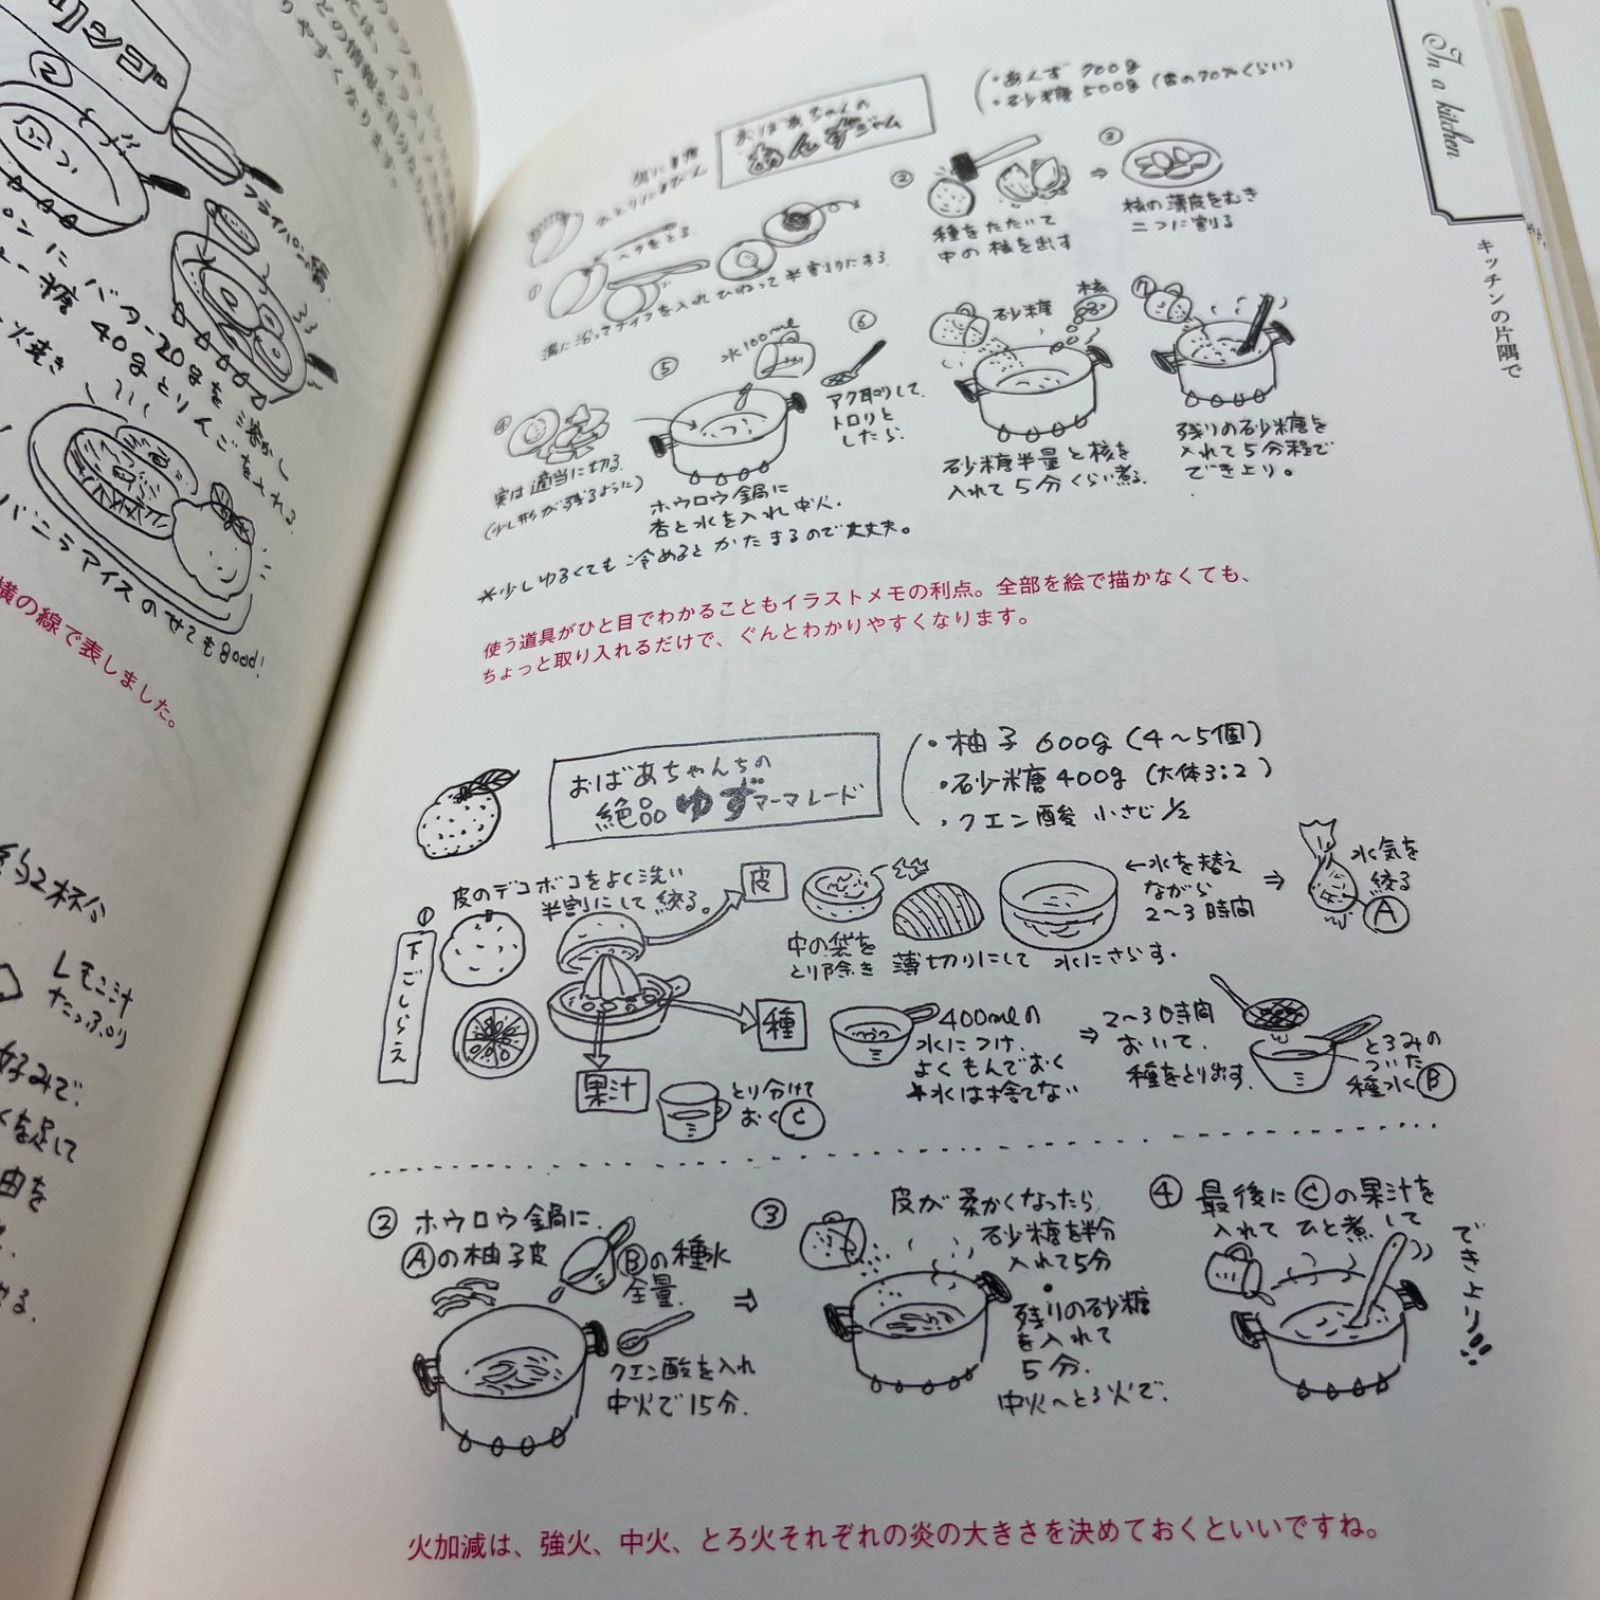 In a kitchen
キッチンの片隅で
おばあちゃんの
あんずジャム
・あんず 700g
・砂糖 500g (杏の70%くらい)
ヘタをとる
①
溝に沿ってナイフを入れひねって半割りにする
②
種をたたいて
中の核を出す
③
核の薄皮をむき
二つに割る
④
実は適当に切る
(少し形が残るように)
⑤
水100ml
ホウロウ鍋に
杏と水を入れ中火.
⑥
アク取りして.
トロリと
したら
砂糖
核
砂糖半量と核を
入れて5分くらい煮る.
⑦
残りの砂糖を
入れて5分程で
でき上り。
*少しゆるくても冷めるとかたまるので大丈夫。
使う道具がひと目でわかることもイラストメモの利点。全部を絵で描かなくても、
ちょっと取り入れるだけで、ぐんとわかりやすくなります。
おばあちゃんちの
絶品ゆずマーマレード
・柚子 600g (4〜5個)
・砂糖 400g (大体3:2)
・クエン酸 小さじ1/2
①
下ごしらえ
皮のデコボコをよく洗い
半割にして絞る。
皮
中の袋を
とり除き 薄切りにして 水にさらす.
←水を替え
ながら
2〜3時間
⇒
水気を
絞る
Ⓐ
種
400mlの
水につけ.
よくもんでおく
*水は捨てない
⇒
2〜3時間
おいて.
種をとり出す.
とろみの
ついた
種水Ⓑ
果汁
とり分けて
おくⒸ
② ホウロウ鍋に
Ⓐの柚子皮
Ⓑの種水
全量.
クエン酸を入れ
中火で15分.
⇒
③
皮が柔かくなったら
砂糖を半分
入れて5分
・
残りの砂糖
を入れて
5分.
中火へとろ火で.
④ 最後にⒸの果汁を
入れてひと煮して
でき上り!!
火加減は、強火、中火、とろ火それぞれの炎の大きさを決めておくといいですね。
②
フライパン
バター20gを溶かし
40gとりんごを入れる
バニラアイスのせてもgood!
横の線で表しました。
レモン汁
たっぷり
好みで.
を足して